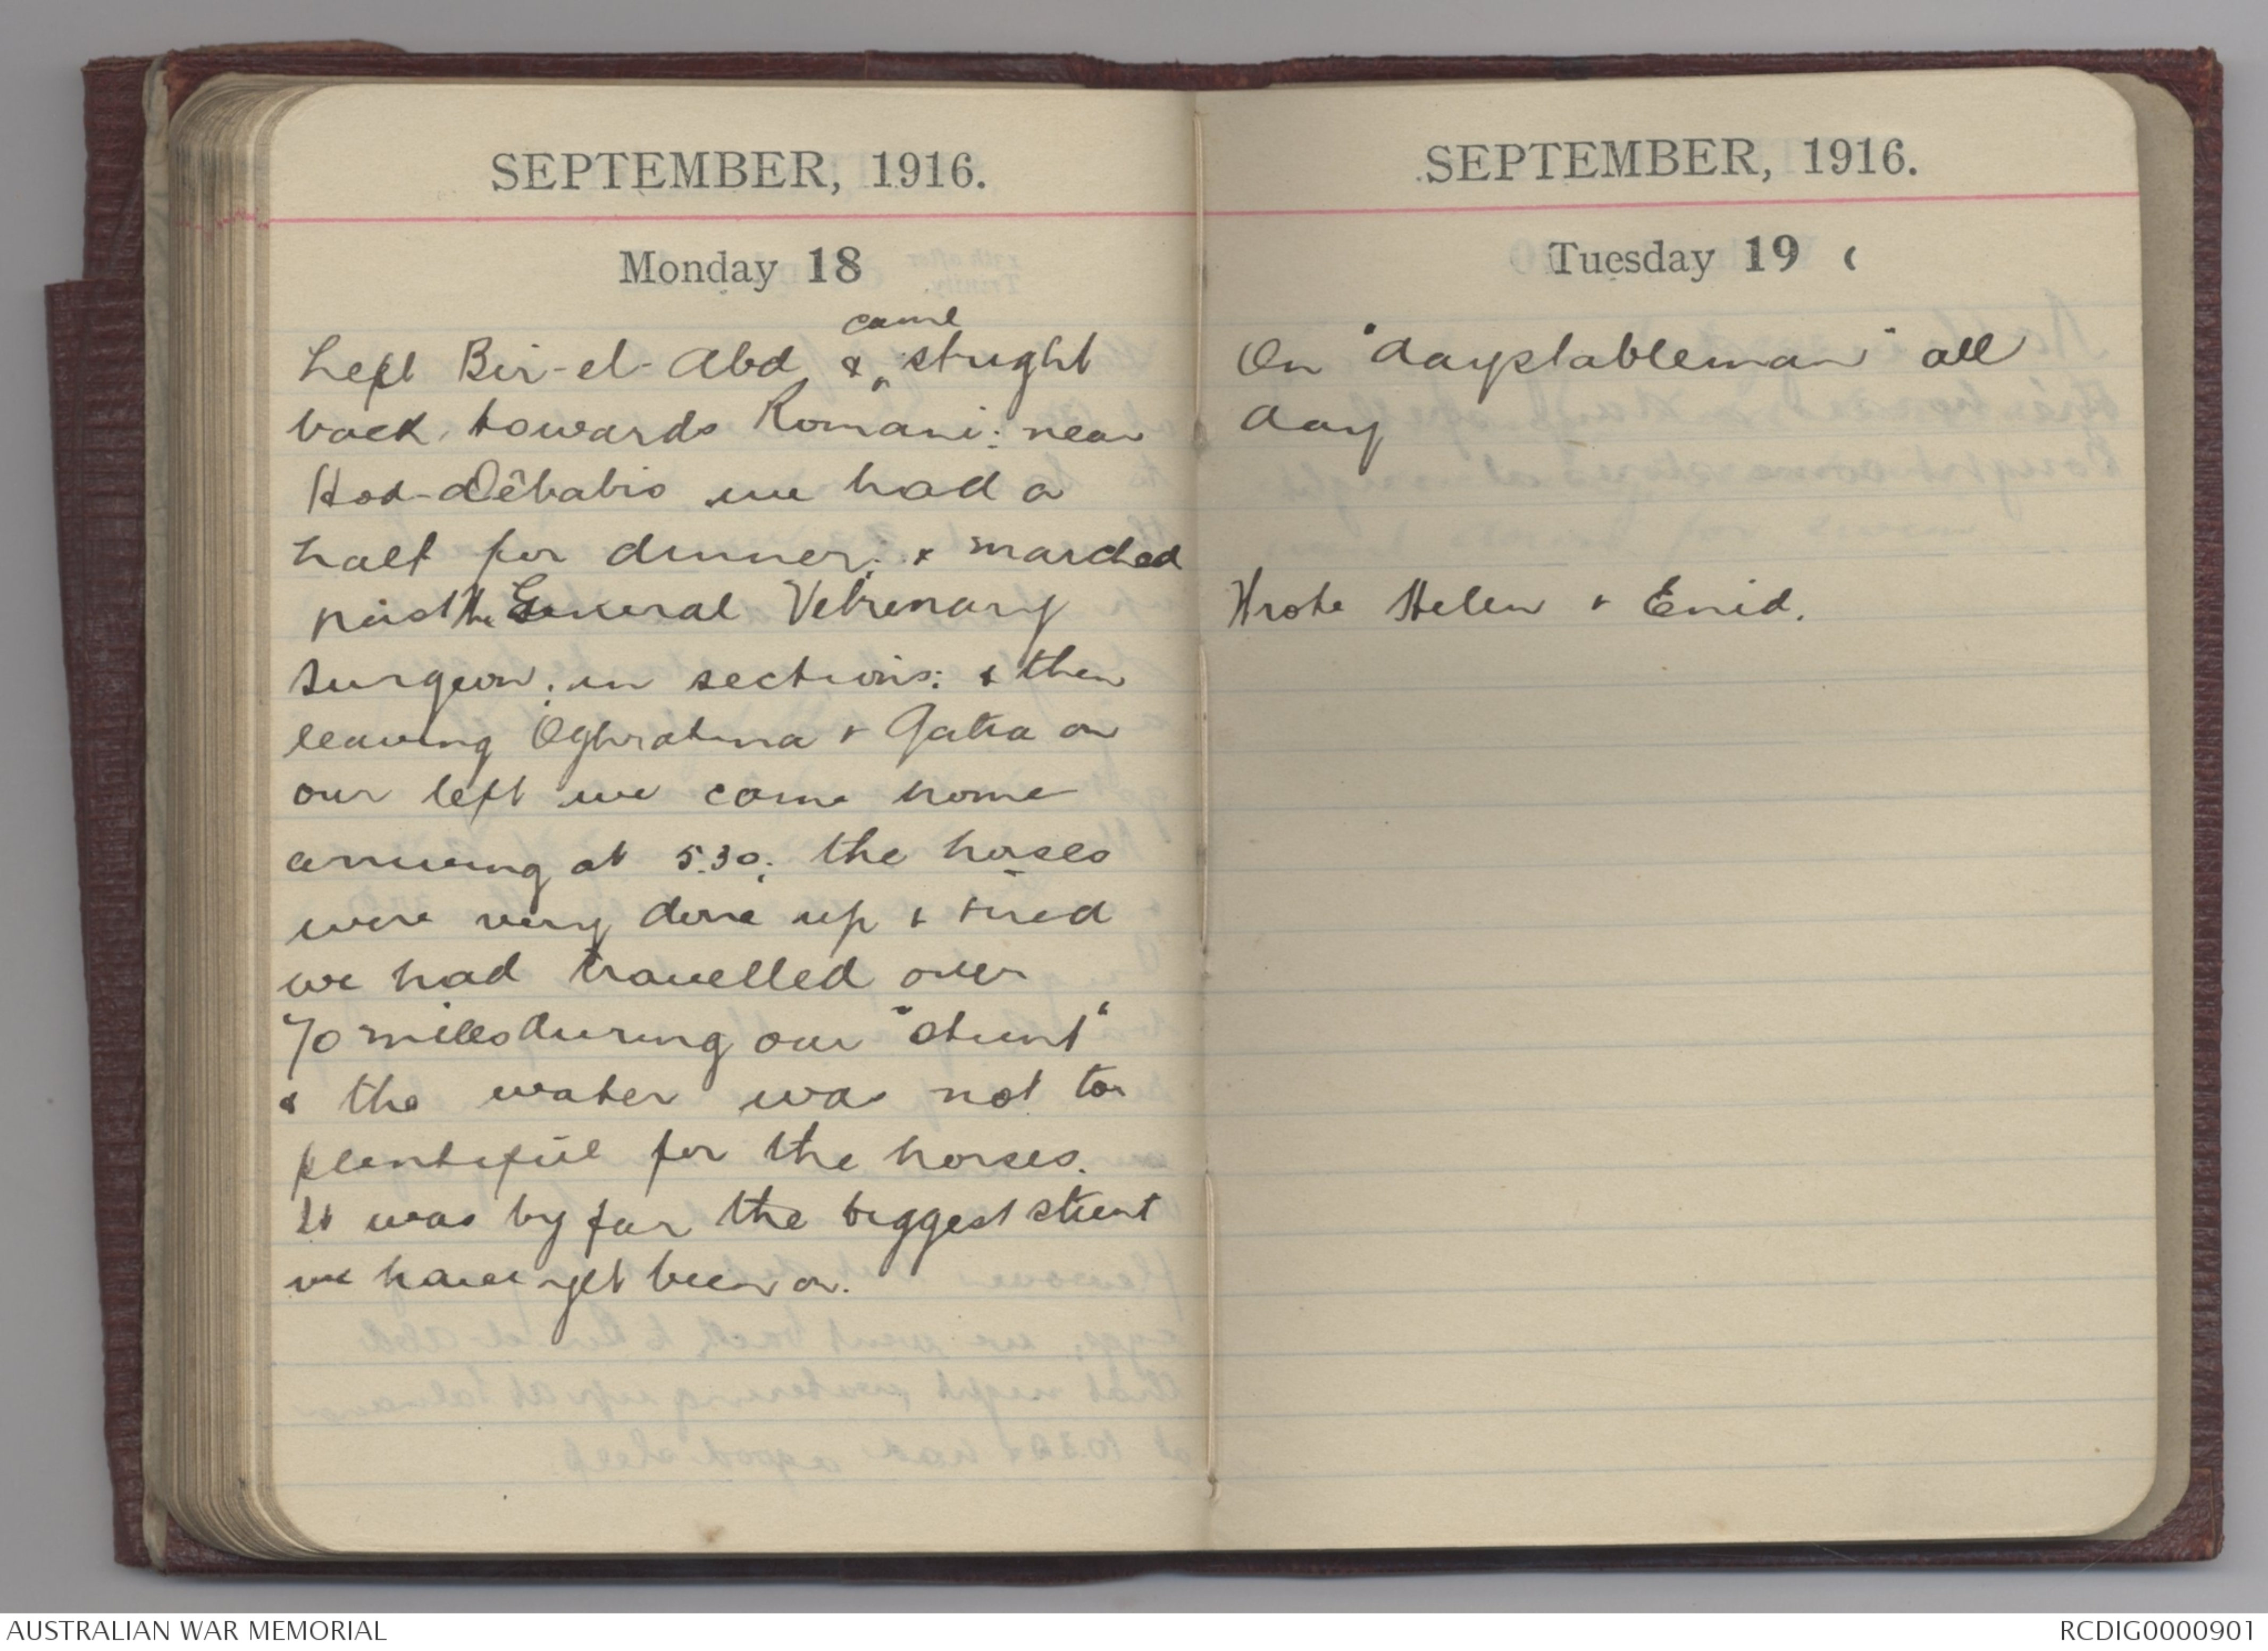 SEPTEMBER, 1916.
Monday 18
Left Bir-el-Abd & came straght
back towards Romani; near
Hod-Dêbabis we had a
halt for dinner; & marched
past the General Vetrenary
Surgeon; in sections; & then
leaving Oghratina & Gatia on
our left we came home
arriving at 5.30; the horses
were very done up & tired
we had travelled over
70 miles during our "stunt"
& the water was not too
plentiful for the horses.
It was by far the biggest stunt
we have yet been on.
SEPTEMBER, 1916.
Tuesday 19
On "daystableman" all
day
Wrote Helen & Enid.
AUSTRALIAN WAR MEMORIAL
RCDIG0000901